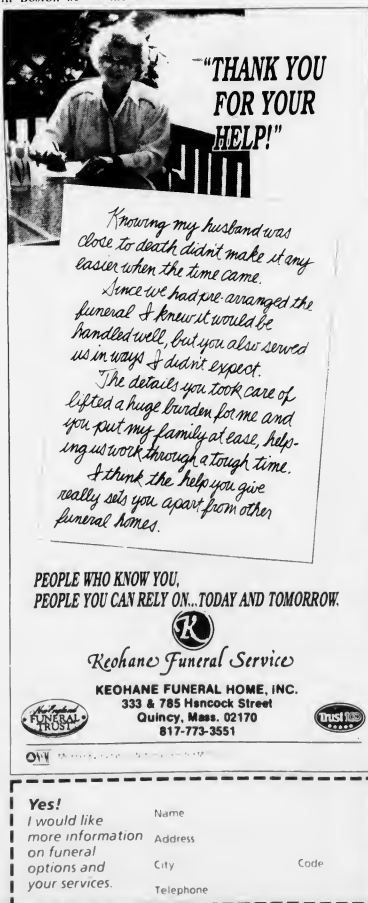 "THANK YOU
FOR YOUR
HELP!"
Knowing my husband was
close to death didn't make it any
easier when the time came.
Since we had pre-arranged the
funeral I knew it would be
handled well, but you also served
us in ways I didn't expect.
The details you took care of
lifted a huge burden for me and
you put my family at ease, help-
ing us work through a tough time.
I think the help you give
really sets you apart from other
funeral homes.
PEOPLE WHO KNOW YOU,
PEOPLE YOU CAN RELY ON...TODAY AND TOMORROW.
K
Keohane Funeral Service
KEOHANE FUNERAL HOME, INC.
333 & 785 Hancock Street
Quincy, Mass. 02170
817-773-3551
New England
FUNERAL
TRUST
Trust 100
Yes!
I would like
more information
on funeral
options and
your services.
Name
Address
City Code
Telephone